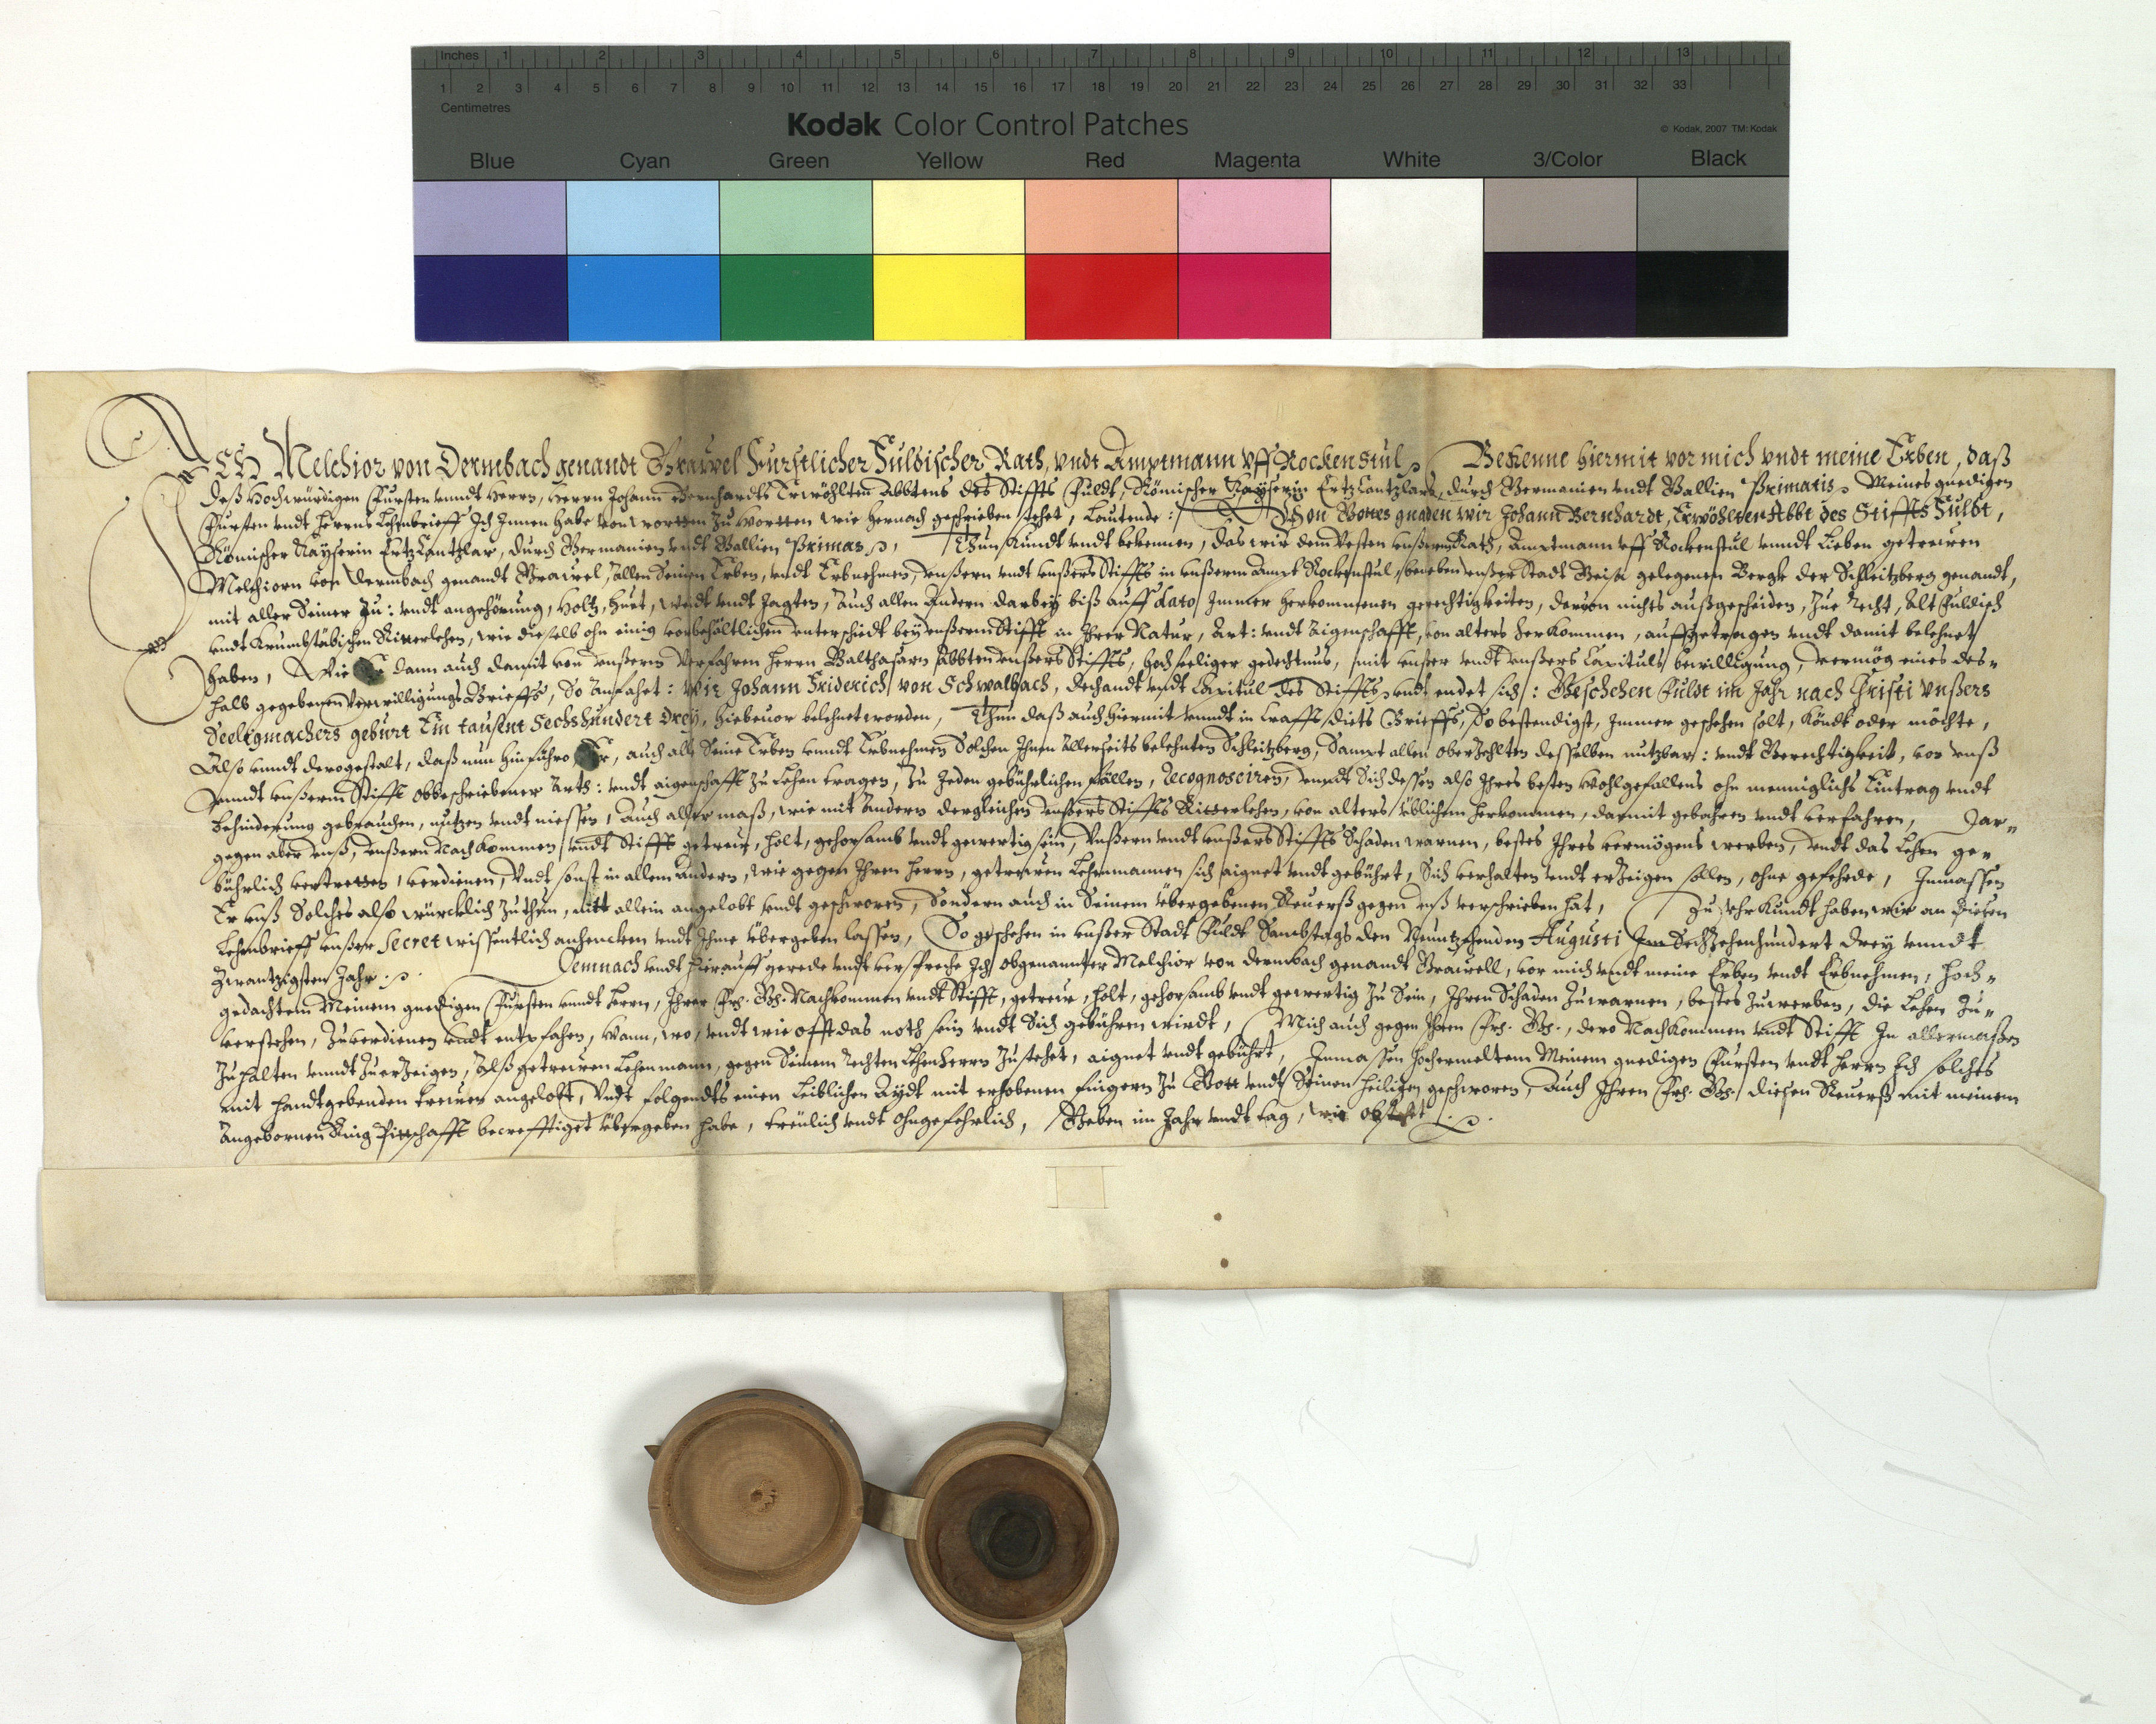 Inches 1 2 3 4 5 6 7 8 9 10 11 12 13
1 2 3 4 5 6 7 8 9 10 11 12 13 14 15 16 17 18 19 20 21 22 23 24 25 26 27 28 29 30 31 32 33
Centimetres
Kodak Color Control Patches
© Kodak, 2007 TM: Kodak
Blue Cyan Green Yellow Red Magenta White 3/Color Black
ICH Melchior von Dermbach genandt Brauvel Furstlicher Fuldischer Rath, vndt Amptmann vff Rockenstul Bekenne hiermit vor mich vndt meine Erben, daß
deß Hochwürdigen Fürsten vnndt Herrn, Herrn Johann Bernhardts Erwöhlten Abbtens des Stiffts Fuldt, Römischer Kayserin ErtzCantzlarn, durch Germanien vndt Gallien Primatis Meines gnedigen
Fürsten vndt Herrns Lehnbrieff Ich Innen habe von wortten zu wortten wie hernach geschrieben stehet, Lautende: Von Gottes gnaden wir Johann Bernhardt, Erwöhlter Abbt des Stiffts Fuldt,
Römischer Kayserin ErtzCantzlar, durch Germanien vndt Gallien Primas, Thun kundt vndt bekennen, das wir dem Vesten vnßerm Rath, Amptmann vff Rockenstul vnndt Lieben getrewen
Melchiorn von Dermbach genandt Brauvel, allen Seinen Erben, vndt Erbnehmen, vnßern vndt vnßers Stiffts in vnßerm Ampt Rockenstul, beneben vnßer Stadt Geisa gelegenen Bergk der Schleitzberg genandt,
mit aller Seiner Zu: vndt angehörung, Holtz, Hurt, weidt vndt Jagten, auch allen Andern darbey biß auff dato Immer herkommenen gerechtigkeiten, dauon nichts außgescheiden, Zue Recht, Alt Fuldisch
vndt Krumbstäbischen Ritterlehen, wie dieselb ohn einig vorbehältlichen vnterschiedt bey vnßerm Stifft in Ihrer Natur, Art: vndt Aigenschafft, von alters herkommen, auffgetragen vndt damit belehnet
haben, Wie Er dann auch damit von vnßerm Vorfahren Herrn Balthasarn Abbten vnßers Stiffts, hochseeliger gedechtnus, mit vnßer vndt vnßers Capituls bewilligung, vermög eines des=
halb gegebenen Verwilligungs Brieffs, So Anfahet: Wir Johann Friderich von Schwalbach, Dechandt vndt Capitul des Stiffts vndt endet sich: Geschehen Fuldt im Jahr nach Christi vnßers
Seeligmachers geburt Ein tausent Sechshundert drey, hiebeuor belehnet worden, Thun daß auch hiermit vnndt in Crafft diets Brieffs, So bestendigst, Immer geschehen solt, Köndt oder möchte,
Also vnndt derogestalt, daß nun hinführo Er, auch alle Seine Erben vnndt Erbnehmen Solchen Ihnen Allerseits belehnten Schleitzberg, Sampt allen oberzehlten desselben nutzbar: vndt Gerechtigkeit, von vnß
vnndt vnßerm Stifft obbeschriebener Arth: vndt aigenschafft zu Lehen tragen, Zu Jeden gebührlichen fällen, Recognosciren, vnndt Sich dessen also Ihres besten wohlgefallens ohn menniglichs Eintrag vndt
behinderung gebrauchen, nutzen vndt niessen, Auch aller maß, wie mit Andern dergleichen vnßers Stiffts Ritterlehen, von alters üblichem herkommen, darmit gebahren vndt verfahren, Dar=
gegen aber vnß, vnßern Nachkommen vndt Stifft getreuw, holt, gehorsamb vndt gewertig sein, Vnßern vndt vnßers Stiffts Schaden warnen, bestes Ihres vermögens werben, vndt das Lehen ge=
bührlich vertretten, verdienen, Vndt sonst in allem Andern, wie gegen Ihren Herrn, getrewen Lehenmannen sich aignet vndt gebührt, Sich verhalten vndt erzeigen sollen, ohne gefehrde, Inmassen
Er vnß Solches also würcklich zu thun, nitt allein angelobt vndt geschworen, Sondern auch in Seinem übergebenen Reuerß gegen vnß verschrieben hat, Zu Uhrkundt haben wir an diesen
Lehnbrieff vnßer Secret wissentlich anhencken vndt Ihme übergeben lassen, So geschehen in vnßer Stadt Fuldt Sambstags den Neuntzehenden Augusti Im Sechzehenhundert drey vnndt
Zwantzigsten Jahr.
Demnach vndt hierauff gerede vndt verspreche Ich obgenannter Melchior von Dermbach genandt Brauvell, vor mich vndt meine Erben vndt Erbnehmen, hoch=
gedachtem Meinem gnedigen Fürsten vnndt Herrn, Ihrer Frl. Gn. Nachkommen vndt Stifft, getreuw, holt, gehorsamb vndt gewertig zu Sein, Ihren Schaden zuwarnen, bestes zuwerben, die Lehen Zu=
verstehen, Zuverdienen vndt entpfahen, Wann, wo, vndt wie offt das noth sein vndt Sich gebühren wirdt, Mich auch gegen Ihren Frl. Gn., dero Nachkommen vndt Stifft In allermaßen
Zuhalten vnndt Zuerzeigen, Alß getrewen Lehenmann, gegen Seinem Rechten Lehenherrn Zustehet, aignet vndt gebührt, Inmassen hochermeltem Meinem gnedigen Fürsten vndt Herrn Ich solches
mit handtgebenden trewen angelobt, Vndt folgendts einen Leiblichen Aydt mit erhobenen fingern zu Gott vndt Seinen Heiligen geschworen, Auch Ihren Frl. Gn. diesen Reuerß mit meinem
Angebornen Ring Pittschafft becrefftiget übergeben habe, treulich vndt Ohngefehrlich, Geben im Jahr vndt tag, wie obstehet